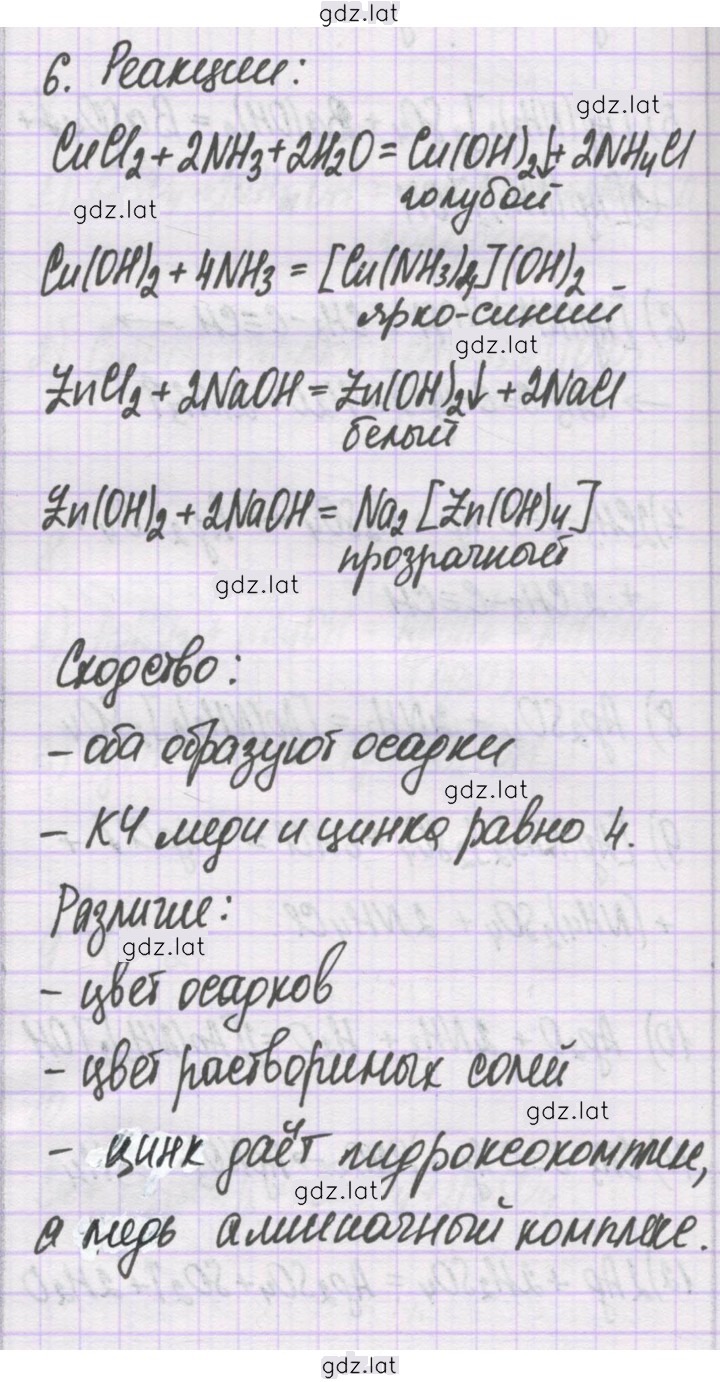 gdz.lat
6. Реакции:
gdz.lat
CuCl₂ + 2NH₃ + 2H₂O = Cu(OH)₂↓ + 2NH₄Cl
голубой
gdz.lat
Cu(OH)₂ + 4NH₃ = [Cu(NH₃)₄](OH)₂
ярко-синий
gdz.lat
ZnCl₂ + 2NaOH = Zn(OH)₂↓ + 2NaCl
белый
Zn(OH)₂ + 2NaOH = Na₂[Zn(OH)₄]
прозрачный
gdz.lat
Сходство:
- оба образуют осадки
gdz.lat
- КЧ меди и цинка равно 4.
Различие:
gdz.lat
- цвет осадков
- цвет растворимых солей
gdz.lat
- цинк даёт гидроксокомплекс,
gdz.lat
а медь аммиачный комплекс.
gdz.lat